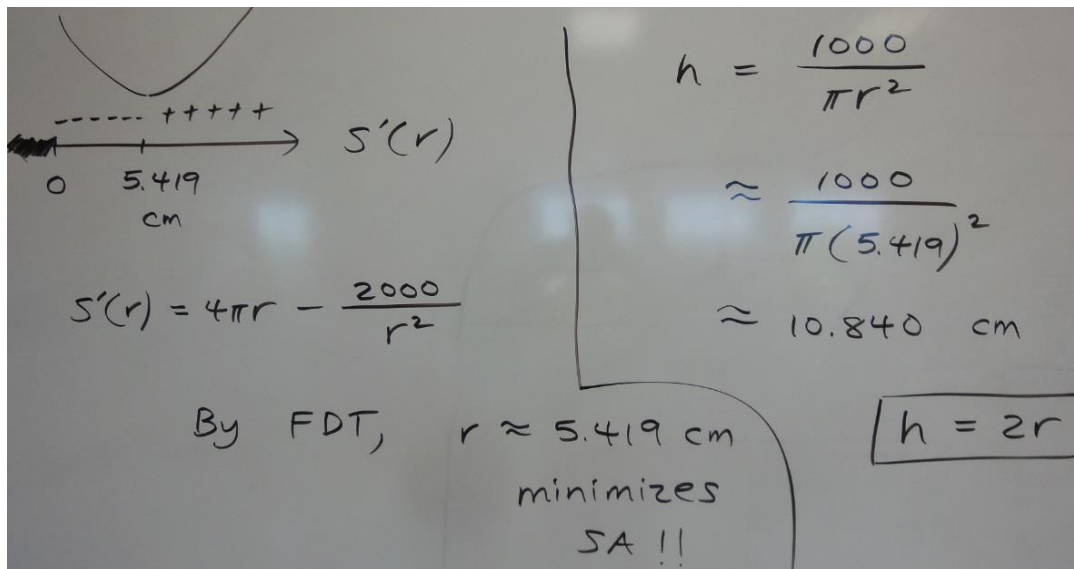 ----- +++++
S'(r)
0 5.419
cm
S'(r) = 4πr - 2000/r²
By FDT, r ≈ 5.419 cm
minimizes
SA !!
h = 1000/πr²
≈ 1000/π(5.419)²
≈ 10.840 cm
h = 2r